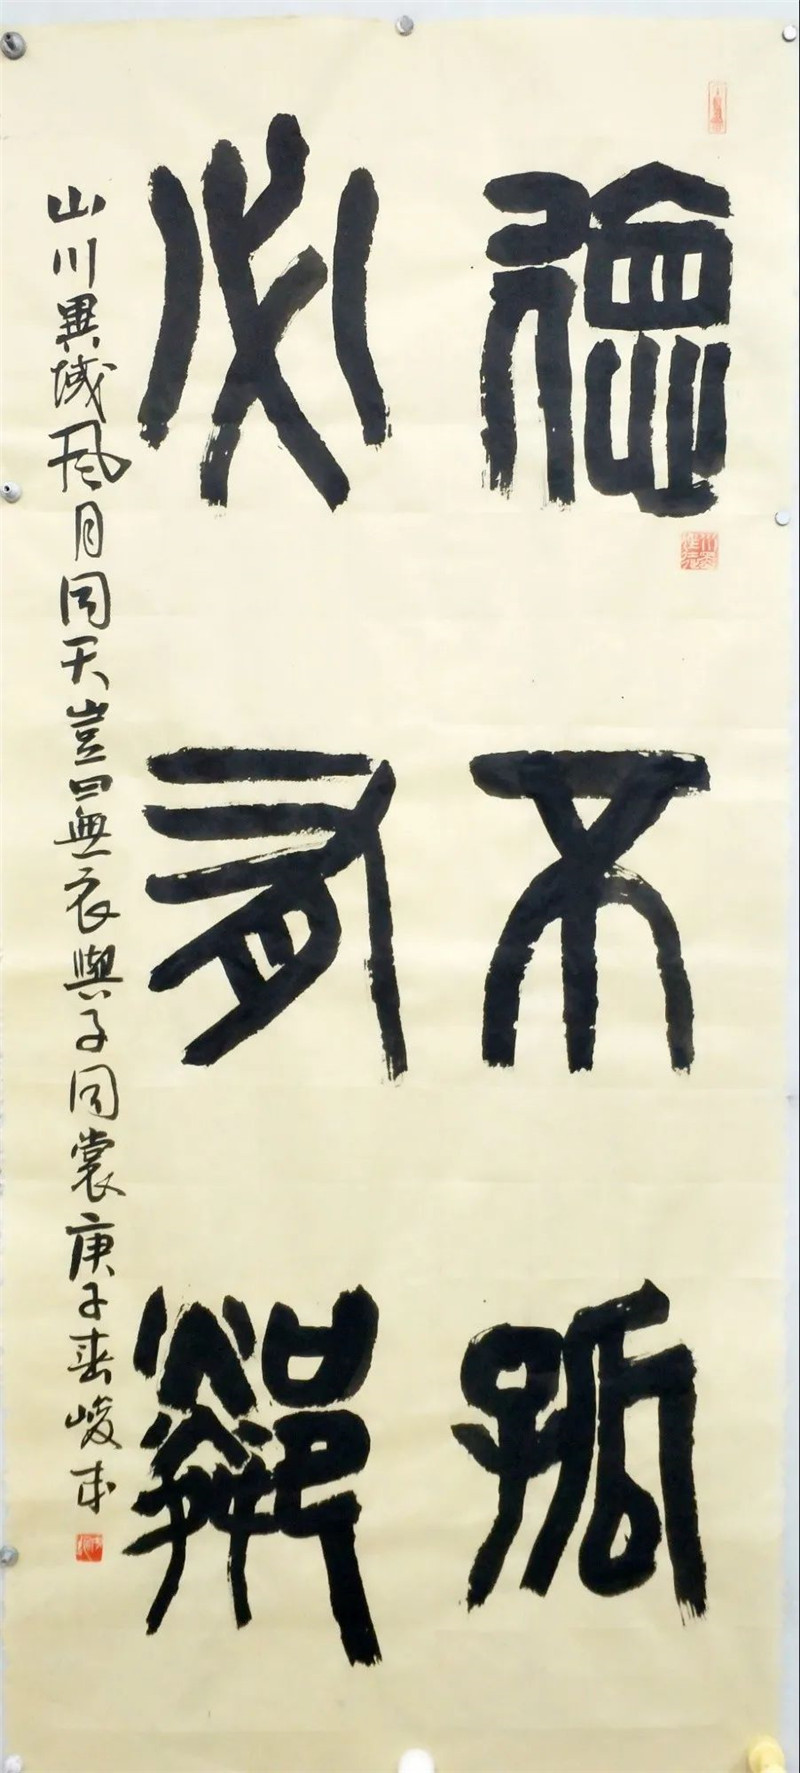 德不孤
必有鄰
山川異域風月同天豈曰無衣與子同裳庚子春峻木